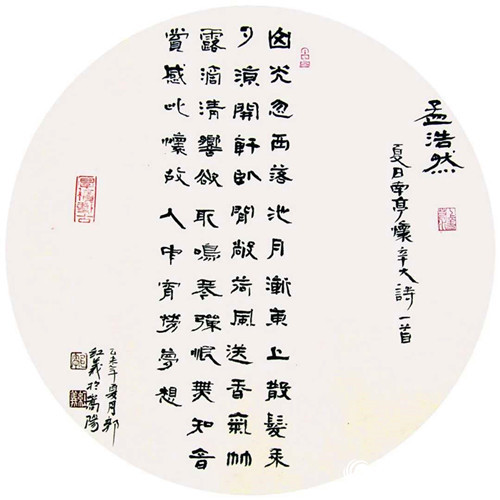 孟浩然
夏日南亭懷辛大詩一首
山光忽西落池月漸東上散髮乘
夕涼開軒臥閒敞荷風送香氣竹
露滴清響欲取鳴琴彈恨無知音
賞感此懷故人中宵勞夢想
年夏月郭
紅義於嵩陽